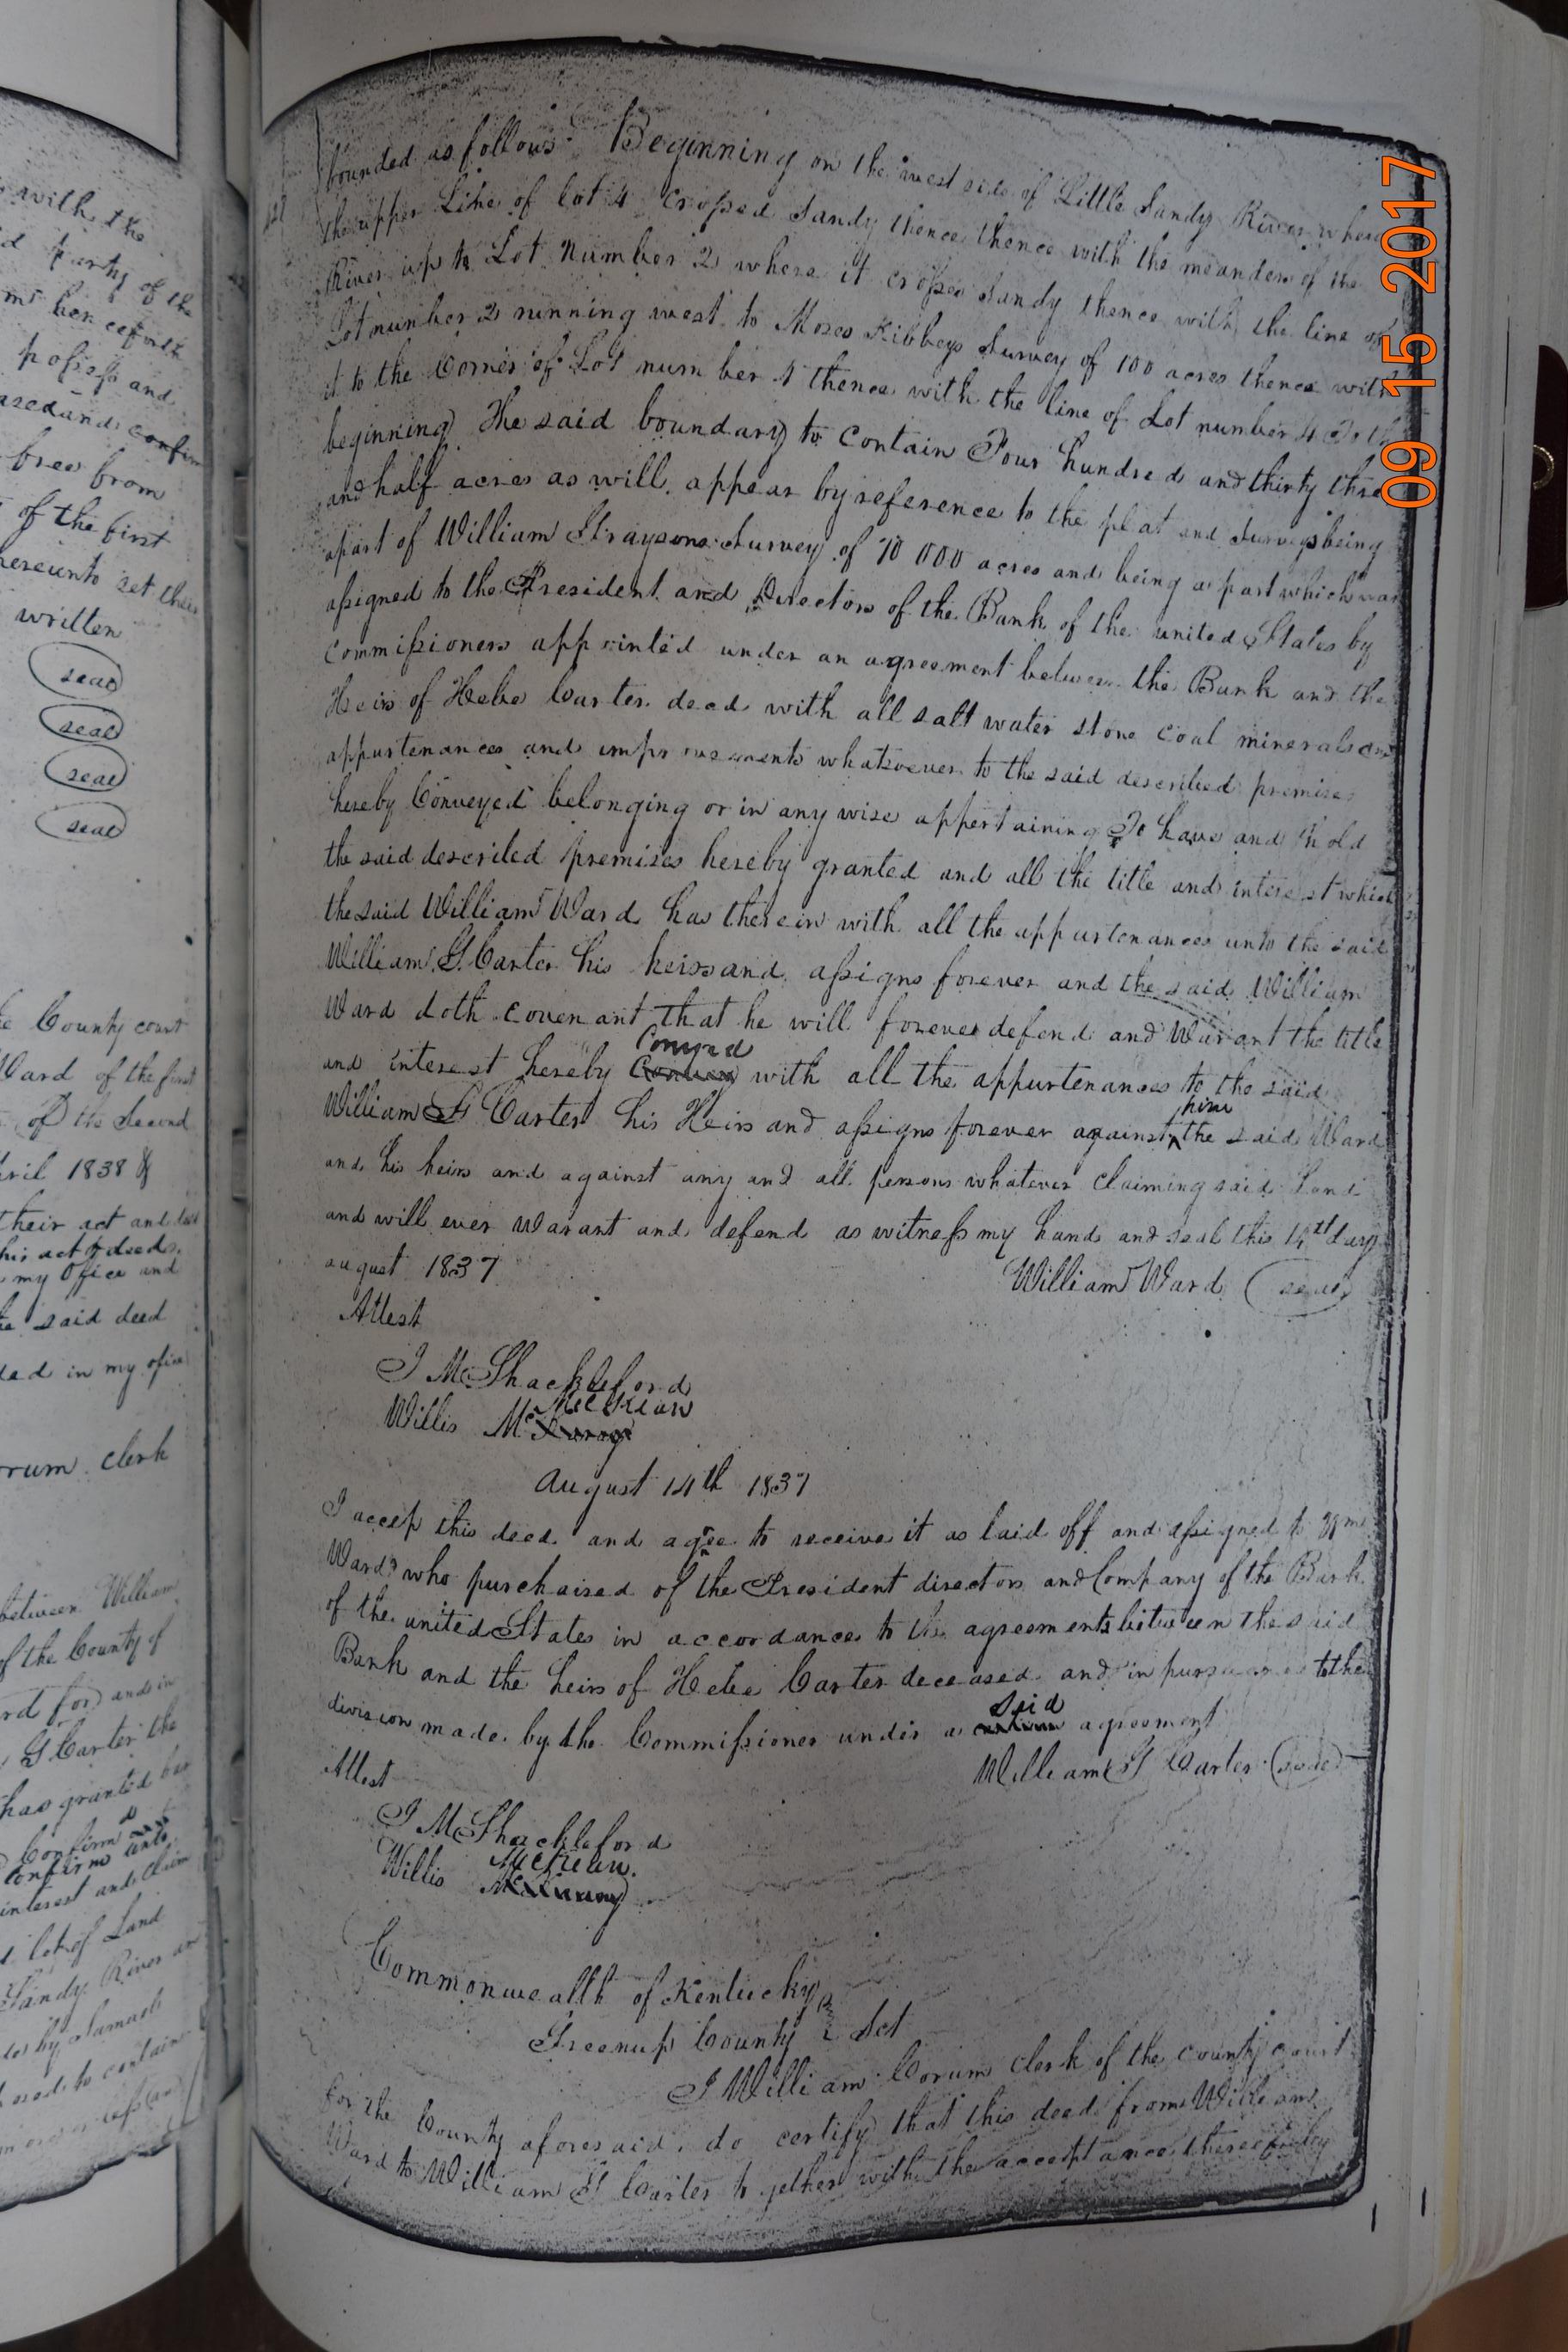 with the
party of the
henceforth
possess and
and confirm
free from
of the first
hereunto set their
written
seal
seal
seal
seal
County court
Ward of the first
of the Second
April 1838 &
their act and deed
his act & deed
my Office and
the said deed
in my office
clerk
between William
of the County of
and in
G Carter the
has granted
Confirm
confirm unto
interest and claim
lot of Land
Sandy River
by Samuel
to contain
bounded as follows Beginning on the west side of Little Sandy River where
the upper Line of lot 4 Crossed Sandy thence thence with the meanders of the
River up to Lot Number 2 where it crosses Sandy thence with the line of
Lot number 2 running west to Moses Kibbeys Survey of 100 acres thence with
it to the Corner of Lot number 4 thence with the line of Lot number 4 to the
beginning The said boundary to contain Four hundred and thirty three
and half acres as will appear by reference to the plat and Surveys being
apart of William Graysons Survey of 70 000 acres and being a part which was
assigned to the President and Directors of the Bank of the united States by
commissioners appointed under an agreement between the Bank and the
Heirs of Hebe Carter decd with all salt water stone coal minerals and
appurtenances and improvements whatsoever to the said described premises
hereby Conveyed belonging or in any wise appertaining To have and to hold
the said described premises hereby granted and all the title and interest which
the said William Ward has therein with all the appurtenances unto the said
William G. Carter his heirs and assigns forever and the said William
Ward doth covenant that he will forever defend and Warant the title
and interest hereby Convey with all the appurtenances to the said
William G Carter his Heirs and assigns forever against him the said Ward
and his heirs and against any and all persons whatever Claiming said Land
and will ever Warant and defend as witness my hand and seal this 14th day
august 1837 William Ward seal
Attest
J M Shackleford
Willis McKean
August 14th 1837
I accep this deed and agree to receive it as laid off and assigned to Wm
Ward who purchaised of the President directors and Company of the Bank
of the united States in accordance to the agreements between the said
Bank and the heirs of Hebe Carter deceased and in pursuance to the
division made by the Commissioner under a said agreement
William G Carter seal
Attest
J M Shackleford
Willis McKean
Commonwealth of Kentucky
Greenup County Sct
I William Corum Clerk of the county court
for the County aforesaid do certify that this deed from William
Ward to William G Carter together with the acceptance thereof by
09 15 2017